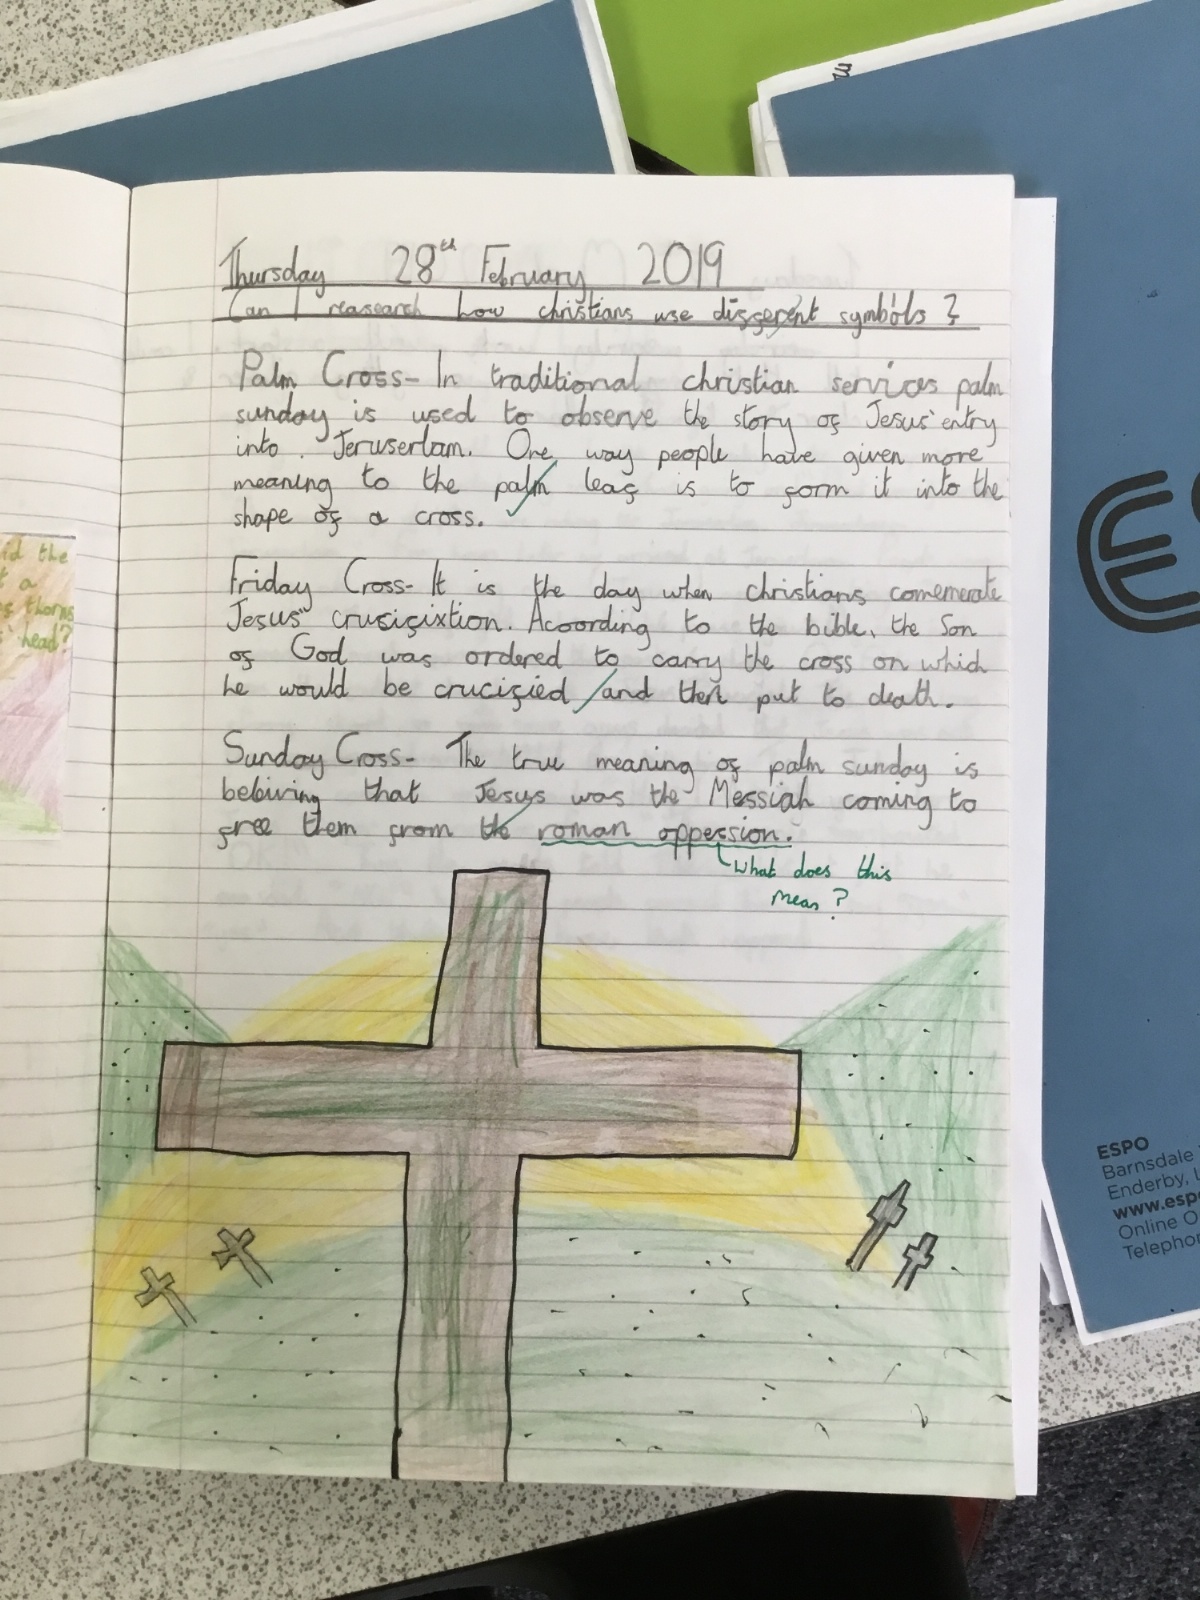 Thursday 28th February 2019
Can I reasearch how christians use different symbols?
Palm Cross- In traditional christian services palm
sunday is used to observe the story of Jesus' entry
into. Jeruserlam. One way people have given more
meaning to the palm leaf is to form it into the
shape of a cross.
Friday Cross- It is the day when christians comemerate
Jesus" crusifixtion. Acording to the bible, the Son
of God was ordered to carry the cross on which
he would be crucified and then put to death.
Sunday Cross- The true meaning of palm sunday is
beleiving that Jesus was the Messiah coming to
free them from the roman oppession.
What does this
mean?
id the
a
thorns
head?
ESPO
Barnsdale
Enderby, L
www.esp
Online O
Telephon